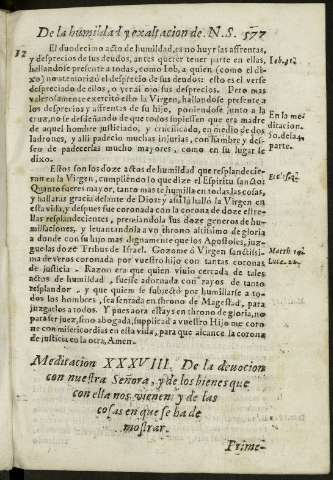 De la humildad y exaltacion de N.S. 577
12
El duodecimo acto de humildad, es no huyr las affrentas,
y desprecios de sus deudos, antes querer tener parte en ellas,
hallandose presente a todas, como Iob, a quien (como el di-
xo) no atemorizò el desprecio de sus deudos: esto es el verse
despreciado de ellos, o ver a ojo sus desprecios. Pero mas
valerosamente exercitò esto la Virgen, hallandose presente a
los desprecios y affrentas de su hijo, poniendose junto a la
cruz, no se desdeñando de que todos supiessen que era madre
de aquel hombre justiciado, y crucificado, en medio de dos
ladrones, y alli padecio muchas injurias, con hambre y des-
seo de padecerlas mucho mayores, como en su lugar se
dixo.
Iob.
En la me-
ditacion.
50. de la 4.
parte.
Estos son los doze actos de humildad que resplandecie-
ron en la Virgen, cumpliendo lo que dize el Espiritu sancto:
Quanto fueres mayor, tanto mas te humilla en todas las cosas,
y hallaras gracia delante de Dios: y assi la hallò la Virgen en
esta vida, y despues fue coronada con la corona de doze estre-
llas resplandecientes, premiandola sus doze generos de humi-
llaciones, y leuantandola a vn throno altissimo de gloria
a donde con su hijo muy dignamente que los Apostoles, juz-
gue las doze Tribus de Israel. Gozome ò Virgen sanctissi-
ma de veros coronada por vuestro hijo con tantas coronas
de justicia. Razon era que quien viuio cercada de tales
actos de humildad, fuesse adornada con rayos de tanto
resplandor. y que quien se subjectò por humillarse a to-
dos los hombres, sea sentada en throno de Magestad, para
juzgarlos a todos. Y pues aora estays en throno de gloria, no
para ser juez, sino abogada, supplicad a vuestro Hijo me coro-
ne con misericordias en esta vida, para que alcance la corona
de justicia en la otra, Amen.
Matth. 19.
Luc. 22.
Meditacion XXXVIII. De la deuocion
con nuestra Señora, y de los bienes que
con ella nos vienen: y de las
cosas en que se ha de
mostrar.
Prime-